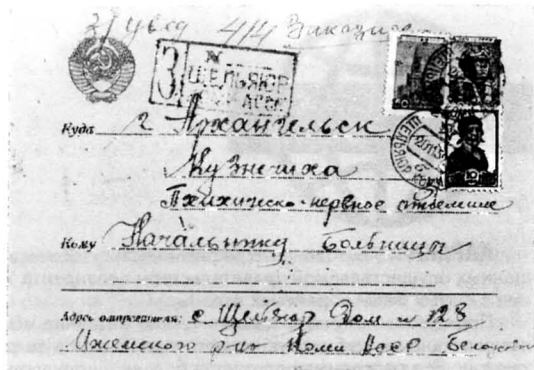 Заказное
З №
ЩЕЛЬЯЮР
АССР
Куда г Архангельск
Кузнечиха
Психическо-нервное отделение
Кому Начальнику Больницы
Адрес отправителя: с. Щельяюр Дом № 128
Ижемского р-на Коми АССР